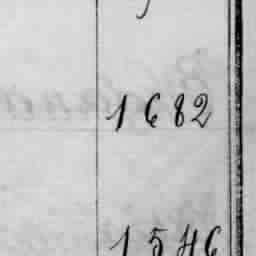 1682
1546